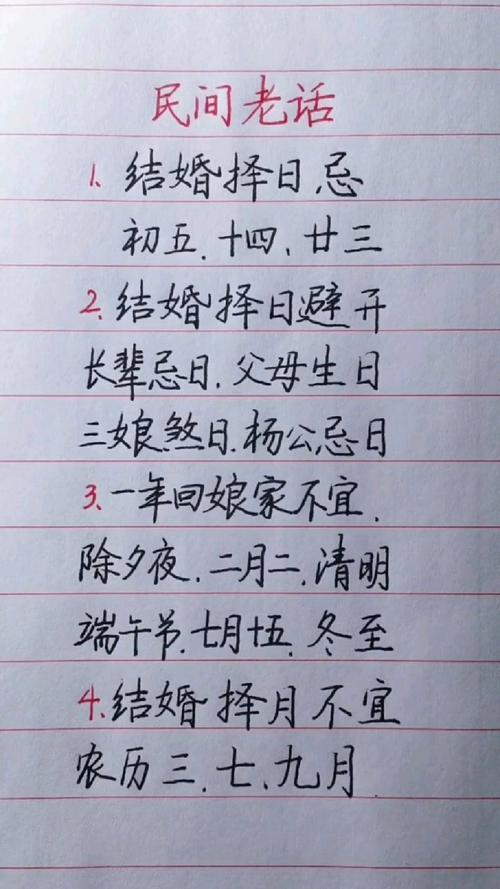 民间老话
1、结婚择日,忌
初五.十四、廿三
2、结婚择日避开
长辈忌日.父母生日
三娘煞日.杨公忌日
3、一年回娘家不宜.
除夕夜.二月二.清明
端午节.七月十五.冬至
4、结婚择月不宜
农历三.七、九月.